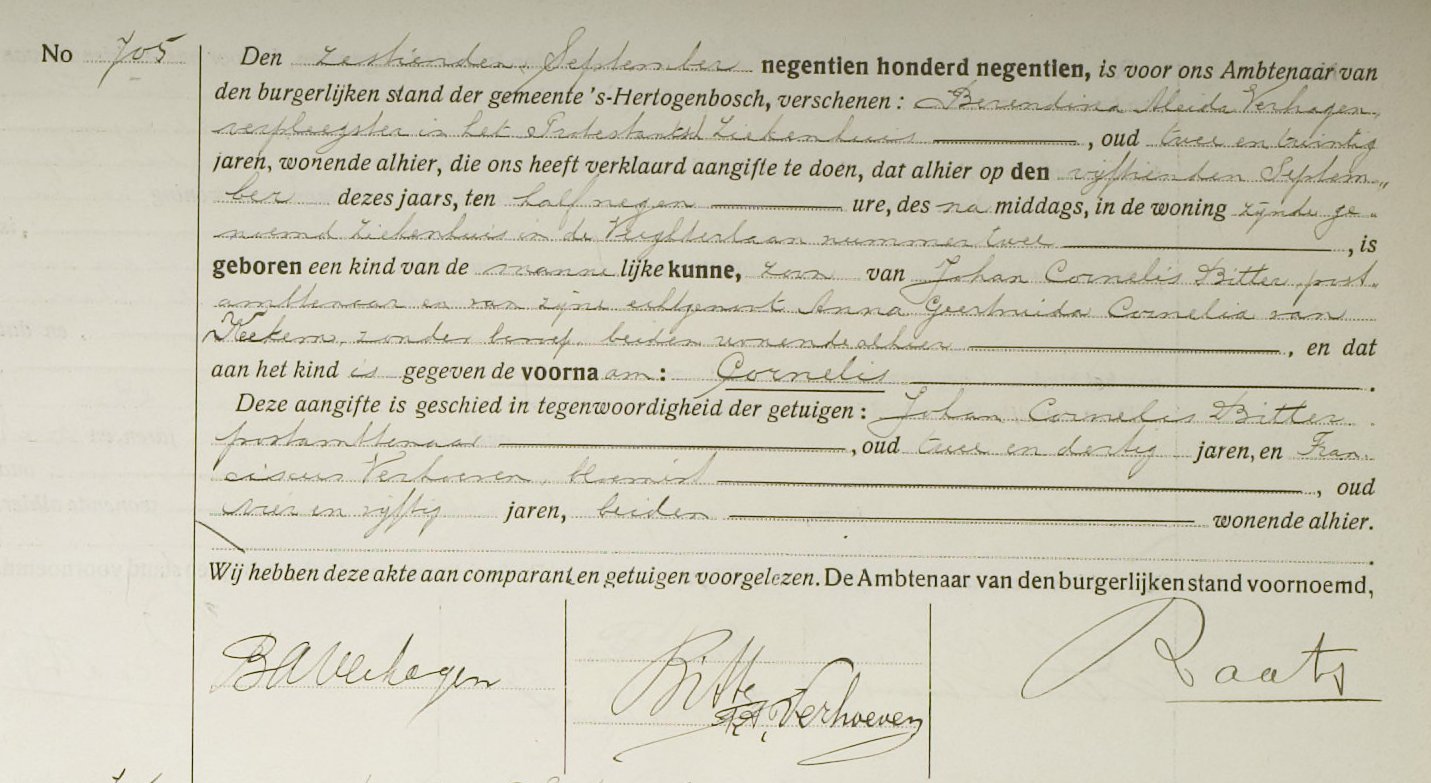 No 705
Den zestienden September negentien honderd negentien, is voor ons Ambtenaar van
den burgerlijken stand der gemeente 's-Hertogenbosch, verschenen: Berendina Aleida Verhagen,
verpleegster in het Protestantsch Ziekenhuis, oud twee en twintig
jaren, wonende alhier, die ons heeft verklaard aangifte te doen, dat alhier op den vijftienden Septem„
ber dezes jaars, ten half negen ure, des na middags, in de woning zijnde ge„
noemd Ziekenhuis in de Vughterlaan nummer twee, is
geboren een kind van de mannelijke kunne, zoon van Johan Cornelis Bitter, post„
ambtenaar en van zijne echtgenoot Anna Geertruida Cornelia van
Kekem, zonder beroep, beiden wonende alhier, en dat
aan het kind is gegeven de voornaam: Cornelis.
Deze aangifte is geschied in tegenwoordigheid der getuigen: Johan Cornelis Bitter
postambtenaar, oud twee en dertig jaren, en Fran„
ciscus Verhoeven, bloemist, oud
vier en vijftig jaren, beiden wonende alhier.
Wij hebben deze akte aan comparant en getuigen voorgelezen. De Ambtenaar van den burgerlijken stand voornoemd,
BAVerhagen
Bitter
Raats
Verhoeven